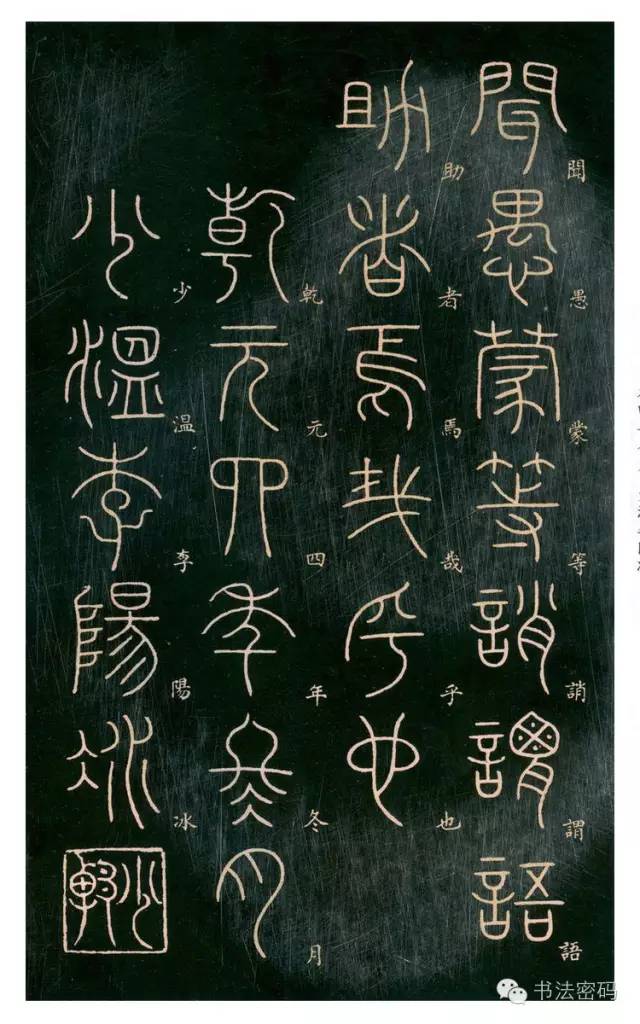 聞愚蒙等誚謂語
聞愚蒙等誚謂語
助者焉哉乎也
助者焉哉乎也
乾元四年冬月
乾元四年冬月
少溫李陽冰
少溫李陽冰
书法密码